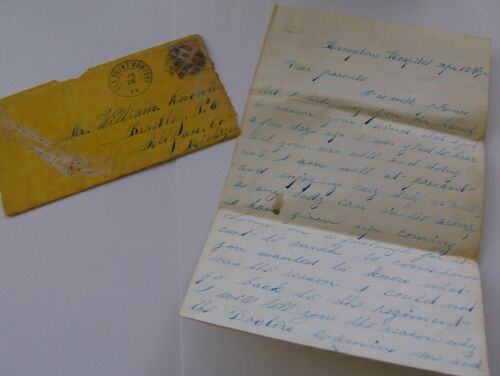 OLD POINT COMFORT
Mr. William Knowles
Bradley P.O
Hampton Hospital Apr 17
Dear parents
It is with pleasure
that I take pen in hand
to answer your kind that I got
a few days ago I was glad to hear
that you was well and doing
well I am well at preasant
and enjoying my self as well
as any body can in the army
I have given up coming
home on a furlong for it
cost to much to come home
you wanted to know what
was the reason I couled not
go back to the regiment
I will tell you the reason why
the Doctors examine me and